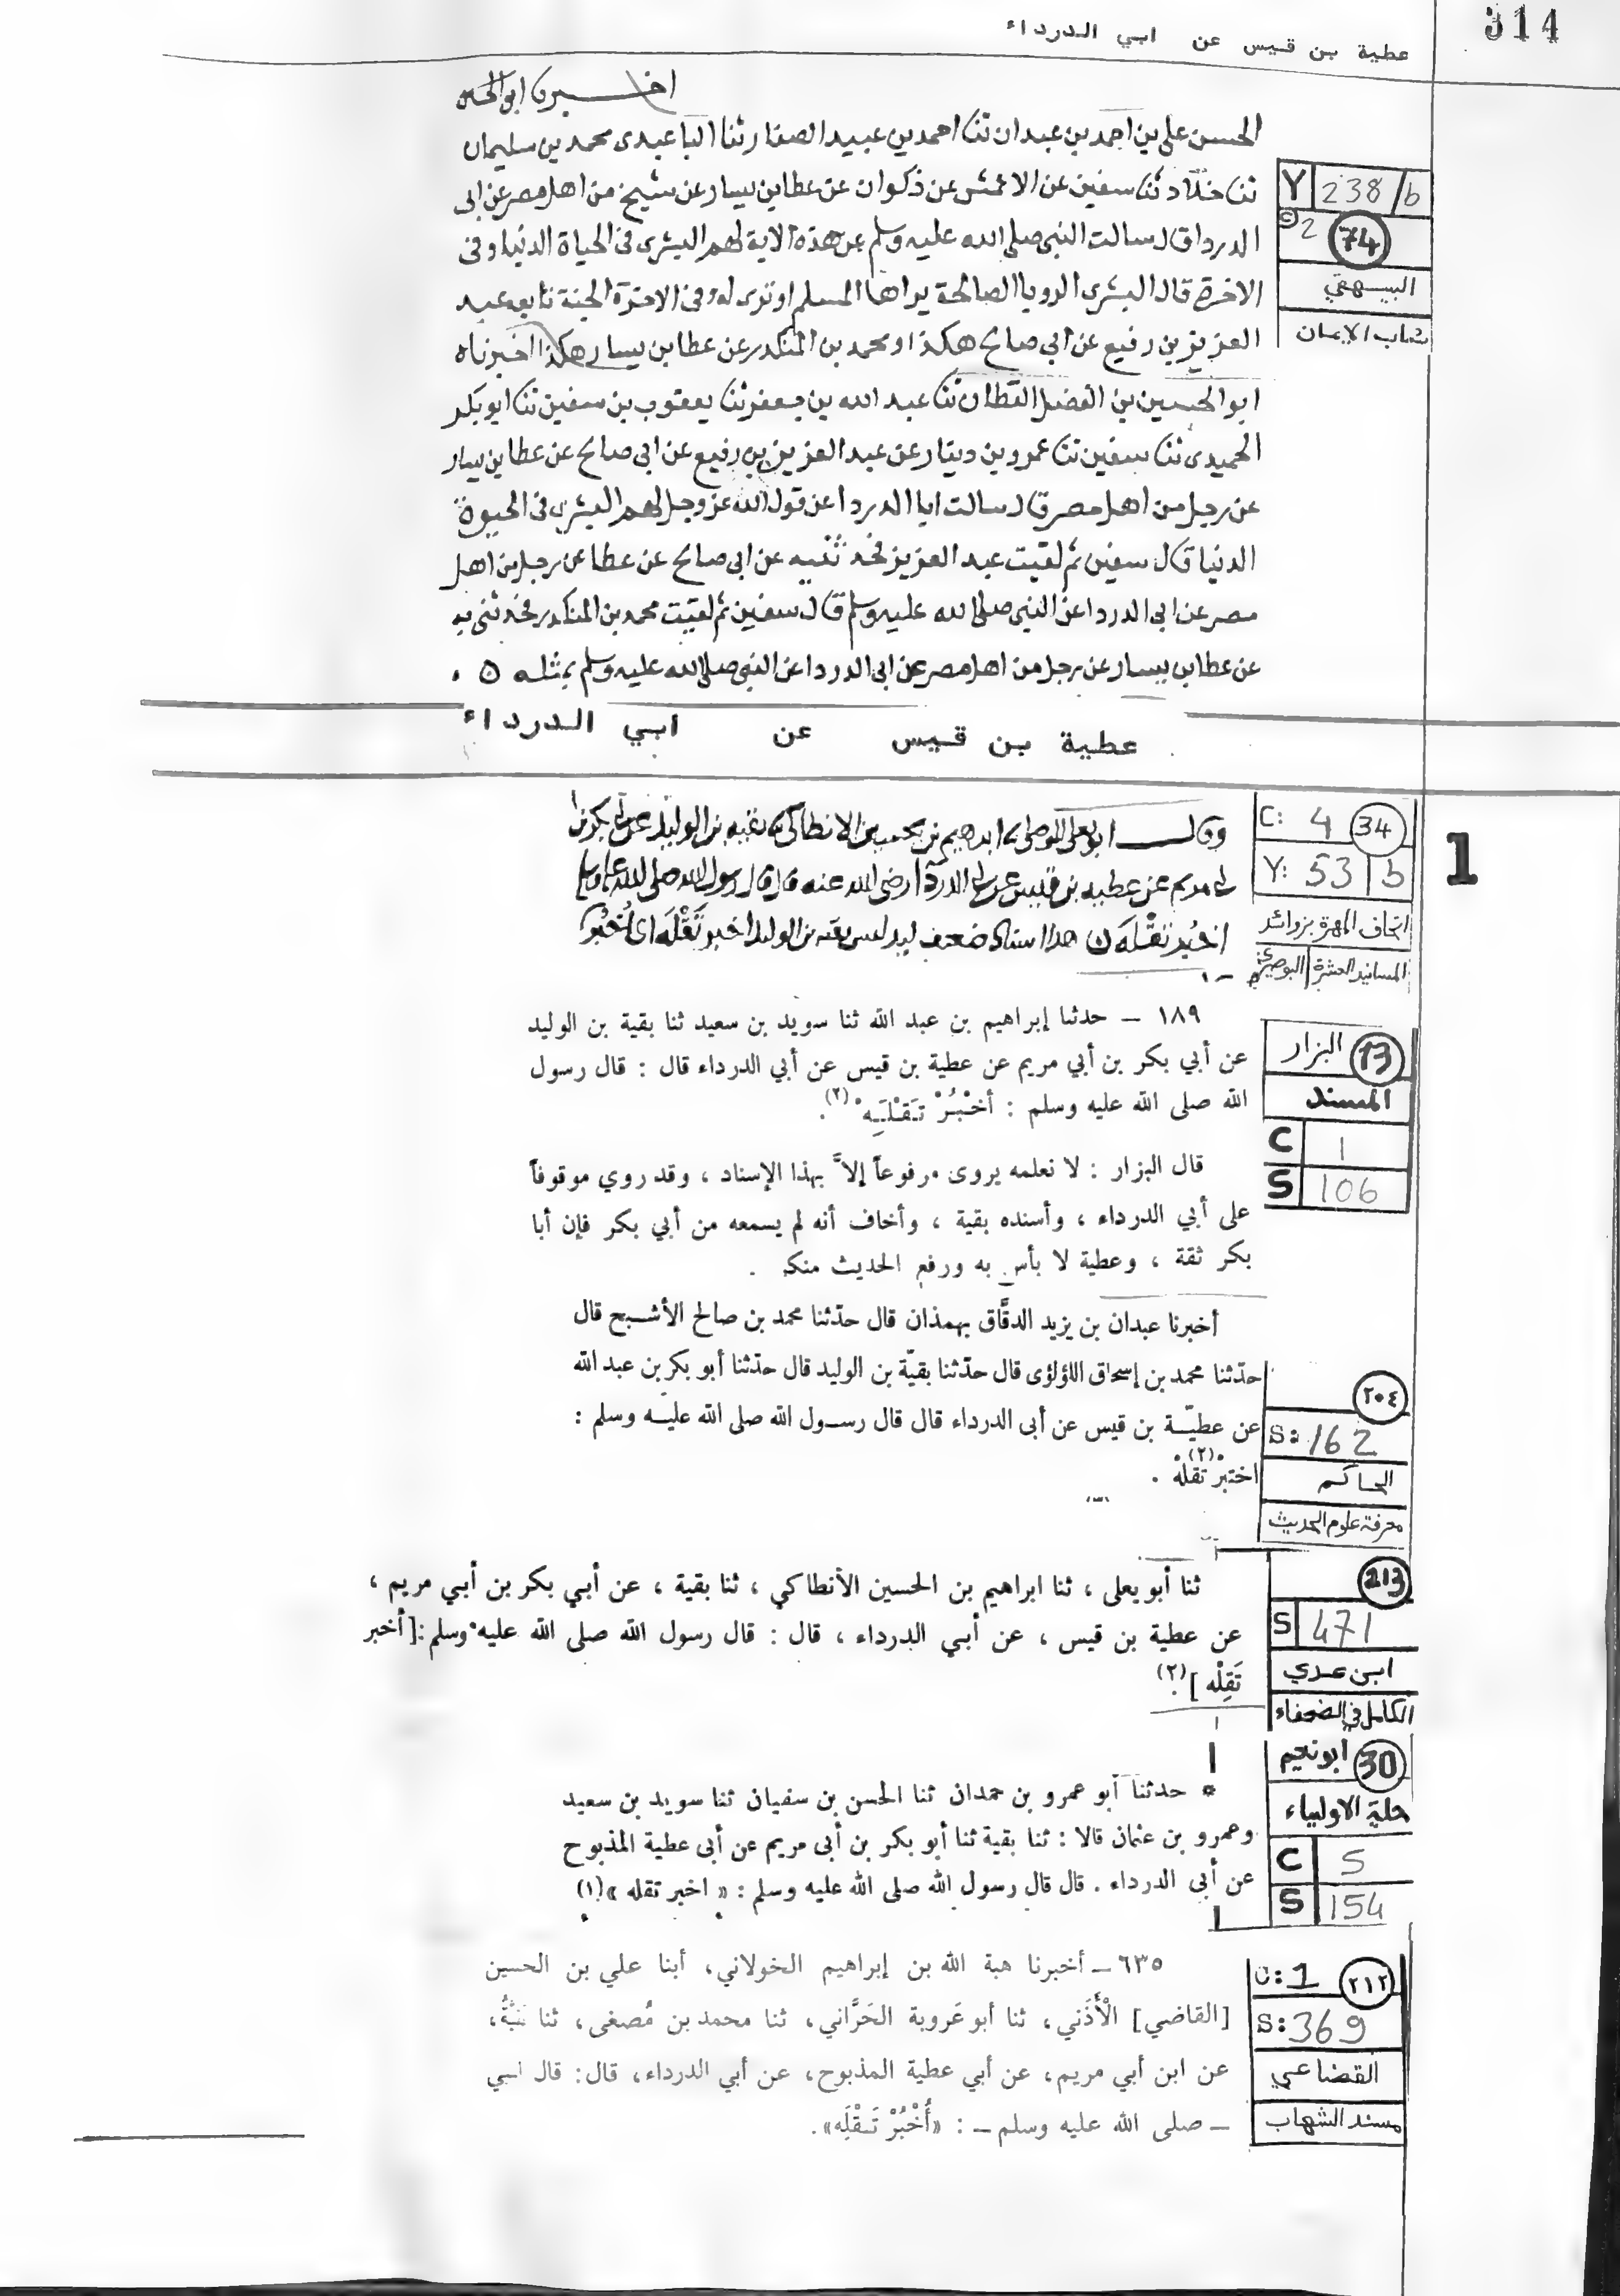 314
عطية بن قيس عن ابي الدرداء
اخــبرنا ابو الحسن
الحسن على بن احمد بن عبدان ثنا احمد بن عبيد الصفار ثنا الباغندى محمد بن سليمان
ثنا خلاد ثنا سفين عن الاعمش عن ذكوان عن عطا بن يسار عن شيخ من اهل مصر عن ابى
الدردا قال سالت النبى صلى الله عليه وسلم عن هذه الاية لهم البشرى فى الحياة الدنيا وفى
الاخرة قال البشرى الرويا الصالحة يراها المسلم او ترى له وفى الاخرة الجنة تابعه عبد
العزيز بن رفيع عن ابى صالح هكذا ومحمد بن المنكدر عن عطا بن يسار هكذا اخبرناه
ابو الحسين بن الفضل القطان ثنا عبد الله بن جعفر ثنا يعقوب بن سفين ثنا ابو بكر
الحميدى ثنا سفين ثنا عمرو بن دينار عن عبد العزيز بن رفيع عن ابى صالح عن عطا بن يسار
عن رجل من اهل مصر قال سالت ابا الدردا عن قول الله عز وجل لهم البشرى فى الحيوة
الدنيا قال سفين ثم لقيت عبد العزيز فحدثنيه عن ابى صالح عن عطا عن رجل من اهل
مصر عن ابى الدردا عن النبى صلى الله عليه وسلم قال سفين ثم لقيت محمد بن المنكدر فحدثنى به
عن عطا بن يسار عن رجل من اهل مصر عن ابى الدردا عن النبى صلى الله عليه وسلم بمثله
Y 238/b
© 2 74
البيهقي
شعاب الايمان
عطية بن قيس عن ابي الدرداء
وقال ابو يعلى الموصلى ثنا ابراهيم بن الحسين الانطاكى ثنا بقية بن الوليد عن ابى بكر بن
ابى مريم عن عطية بن قيس عن ابى الدرداء رضى الله عنه قال قال رسول الله صلى الله عليه وسلم
اخبُر تَقْلَه هذا اسناد ضعيف لتدليس بقية بن الوليد اخبر تَقْلَه اى
C: 4 34
Y: 53 b
اتحاف المهرة بزوائد
المسانيد العشرة البوصيري
1
١٨٩ – حدثنا إبراهيم بن عبد الله ثنا سويد بن سعيد ثنا بقية بن الوليد
عن أبي بكر بن أبي مريم عن عطية بن قيس عن أبي الدرداء قال : قال رسول
الله صلى الله عليه وسلم : أخْبُرْ تَقْلَِهْ (٢).
قال البزار : لا نعلمه يروى مرفوعاً إلاَّ بهذا الإسناد ، وقد روي موقوفاً
على أبي الدرداء ، وأسنده بقية ، وأخاف أنه لم يسمعه من أبي بكر فإن أبا
بكر ثقة ، وعطية لا بأس به ورفع الحديث منكر .
البزار 13
المسند
C 1
S 106
أخبرنا عبدان بن يزيد الدقَّاق بهمذان قال حدّثنا محمد بن صالح الأشـبح قال
حدّثنا محمد بن إسحاق اللؤلؤى قال حدّثنا بقيّة بن الوليد قال حدّثنا أبو بكر بن عبد الله
عن عطيّـة بن قيس عن أبى الدرداء قال قال رسـول الله صلى الله عليـه وسلم :
اختبرْ تقلهْ (٢) .
٢٠٤
S: 162
الحاكم
معرفة علوم الحديث
ثنا أبو يعلى ، ثنا ابراهيم بن الحسين الأنطاكي ، ثنا بقية ، عن أبي بكر بن أبي مريم ،
عن عطية بن قيس ، عن أبي الدرداء ، قال : قال رسول الله صلى الله عليه وسلم :[ أخبر
تَقِلْه ](٢).
213
S 471
ابن عدي
الكامل في الضعفاء
* حدثنا أبو عمرو بن حمدان ثنا الحسن بن سفيان ثنا سويد بن سعيد
وعمرو بن عثمان قالا : ثنا بقية ثنا أبو بكر بن أبى مريم عن أبى عطية المذبوح
عن أبى الدرداء . قال قال رسول الله صلى الله عليه وسلم : « اخبر تقله »(١)
ابو نعيم 30
حلية الاولياء
C 5
S 154
٦٣٥ – أخبرنا هبة الله بن إبراهيم الخولاني، أبنا علي بن الحسين
[القاضي] الْأَذَني، ثنا أبو عَروبة الحَرَّاني، ثنا محمد بن مُصفى، ثنا
عن ابن أبي مريم، عن أبي عطية المذبوح، عن أبي الدرداء، قال: قال
– صلى الله عليه وسلم – : «أُخْبُرْ تَقْلَِه».
C: 1 ٢١٢
S: 369
القضاعي
مسند الشهاب